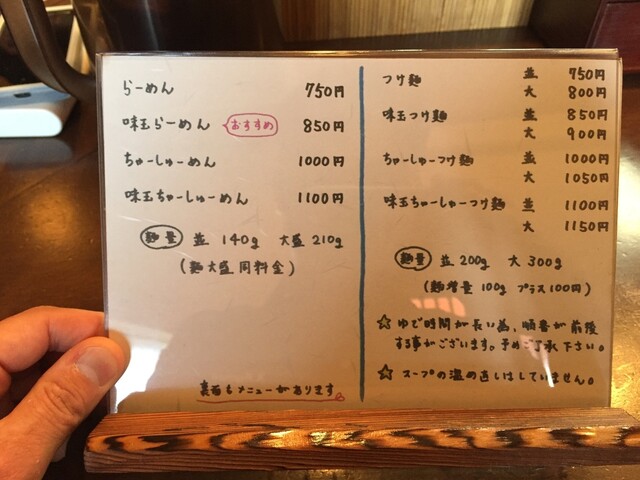 らーめん 750円
味玉らーめん おすすめ 850円
ちゃーしゅーめん 1000円
味玉ちゃーしゅーめん 1100円
麺量 並 140g 大盛 210g
(麺大盛 同料金)
裏面もメニューがあります
つけ麺 並 750円
大 800円
味玉つけ麺 並 850円
大 900円
ちゃーしゅーつけ麺 並 1000円
大 1050円
味玉ちゃーしゅーつけ麺 並 1100円
大 1150円
麺量 並 200g 大 300g
(麺増量 100g プラス100円)
☆ ゆで時間が長い為、順番が前後
する事がございます。予めご了承下さい。
☆ スープの温め直しはしていません。